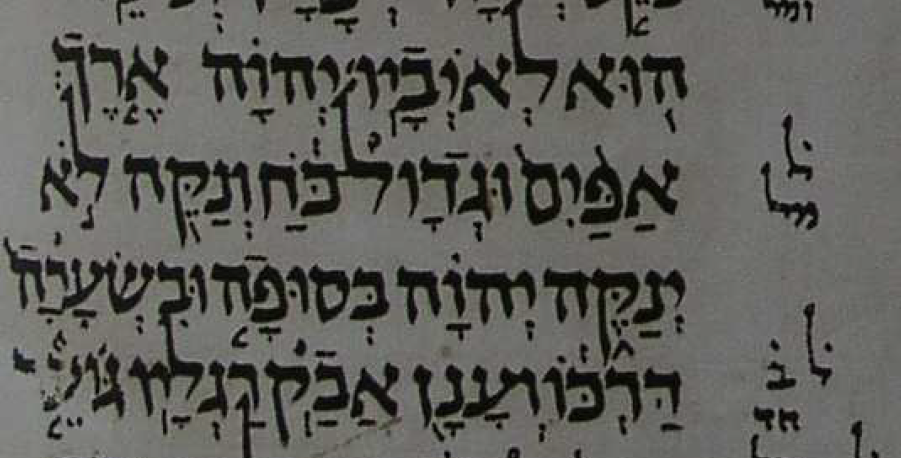 הוּא לְאֹיְבָיו יְהוָה אֶרֶךְ
אַפַּיִם וּגְדָול כֹּחַ וְנַקֵּה לֹא
יְנַקֶּה יְהוָה בְּסוּפָה וּבִשְׂעָרָה
דַּרְכּוֹ וְעָנָן אֲבַק רַגְלָיו
ל
מל
ל ב
חד